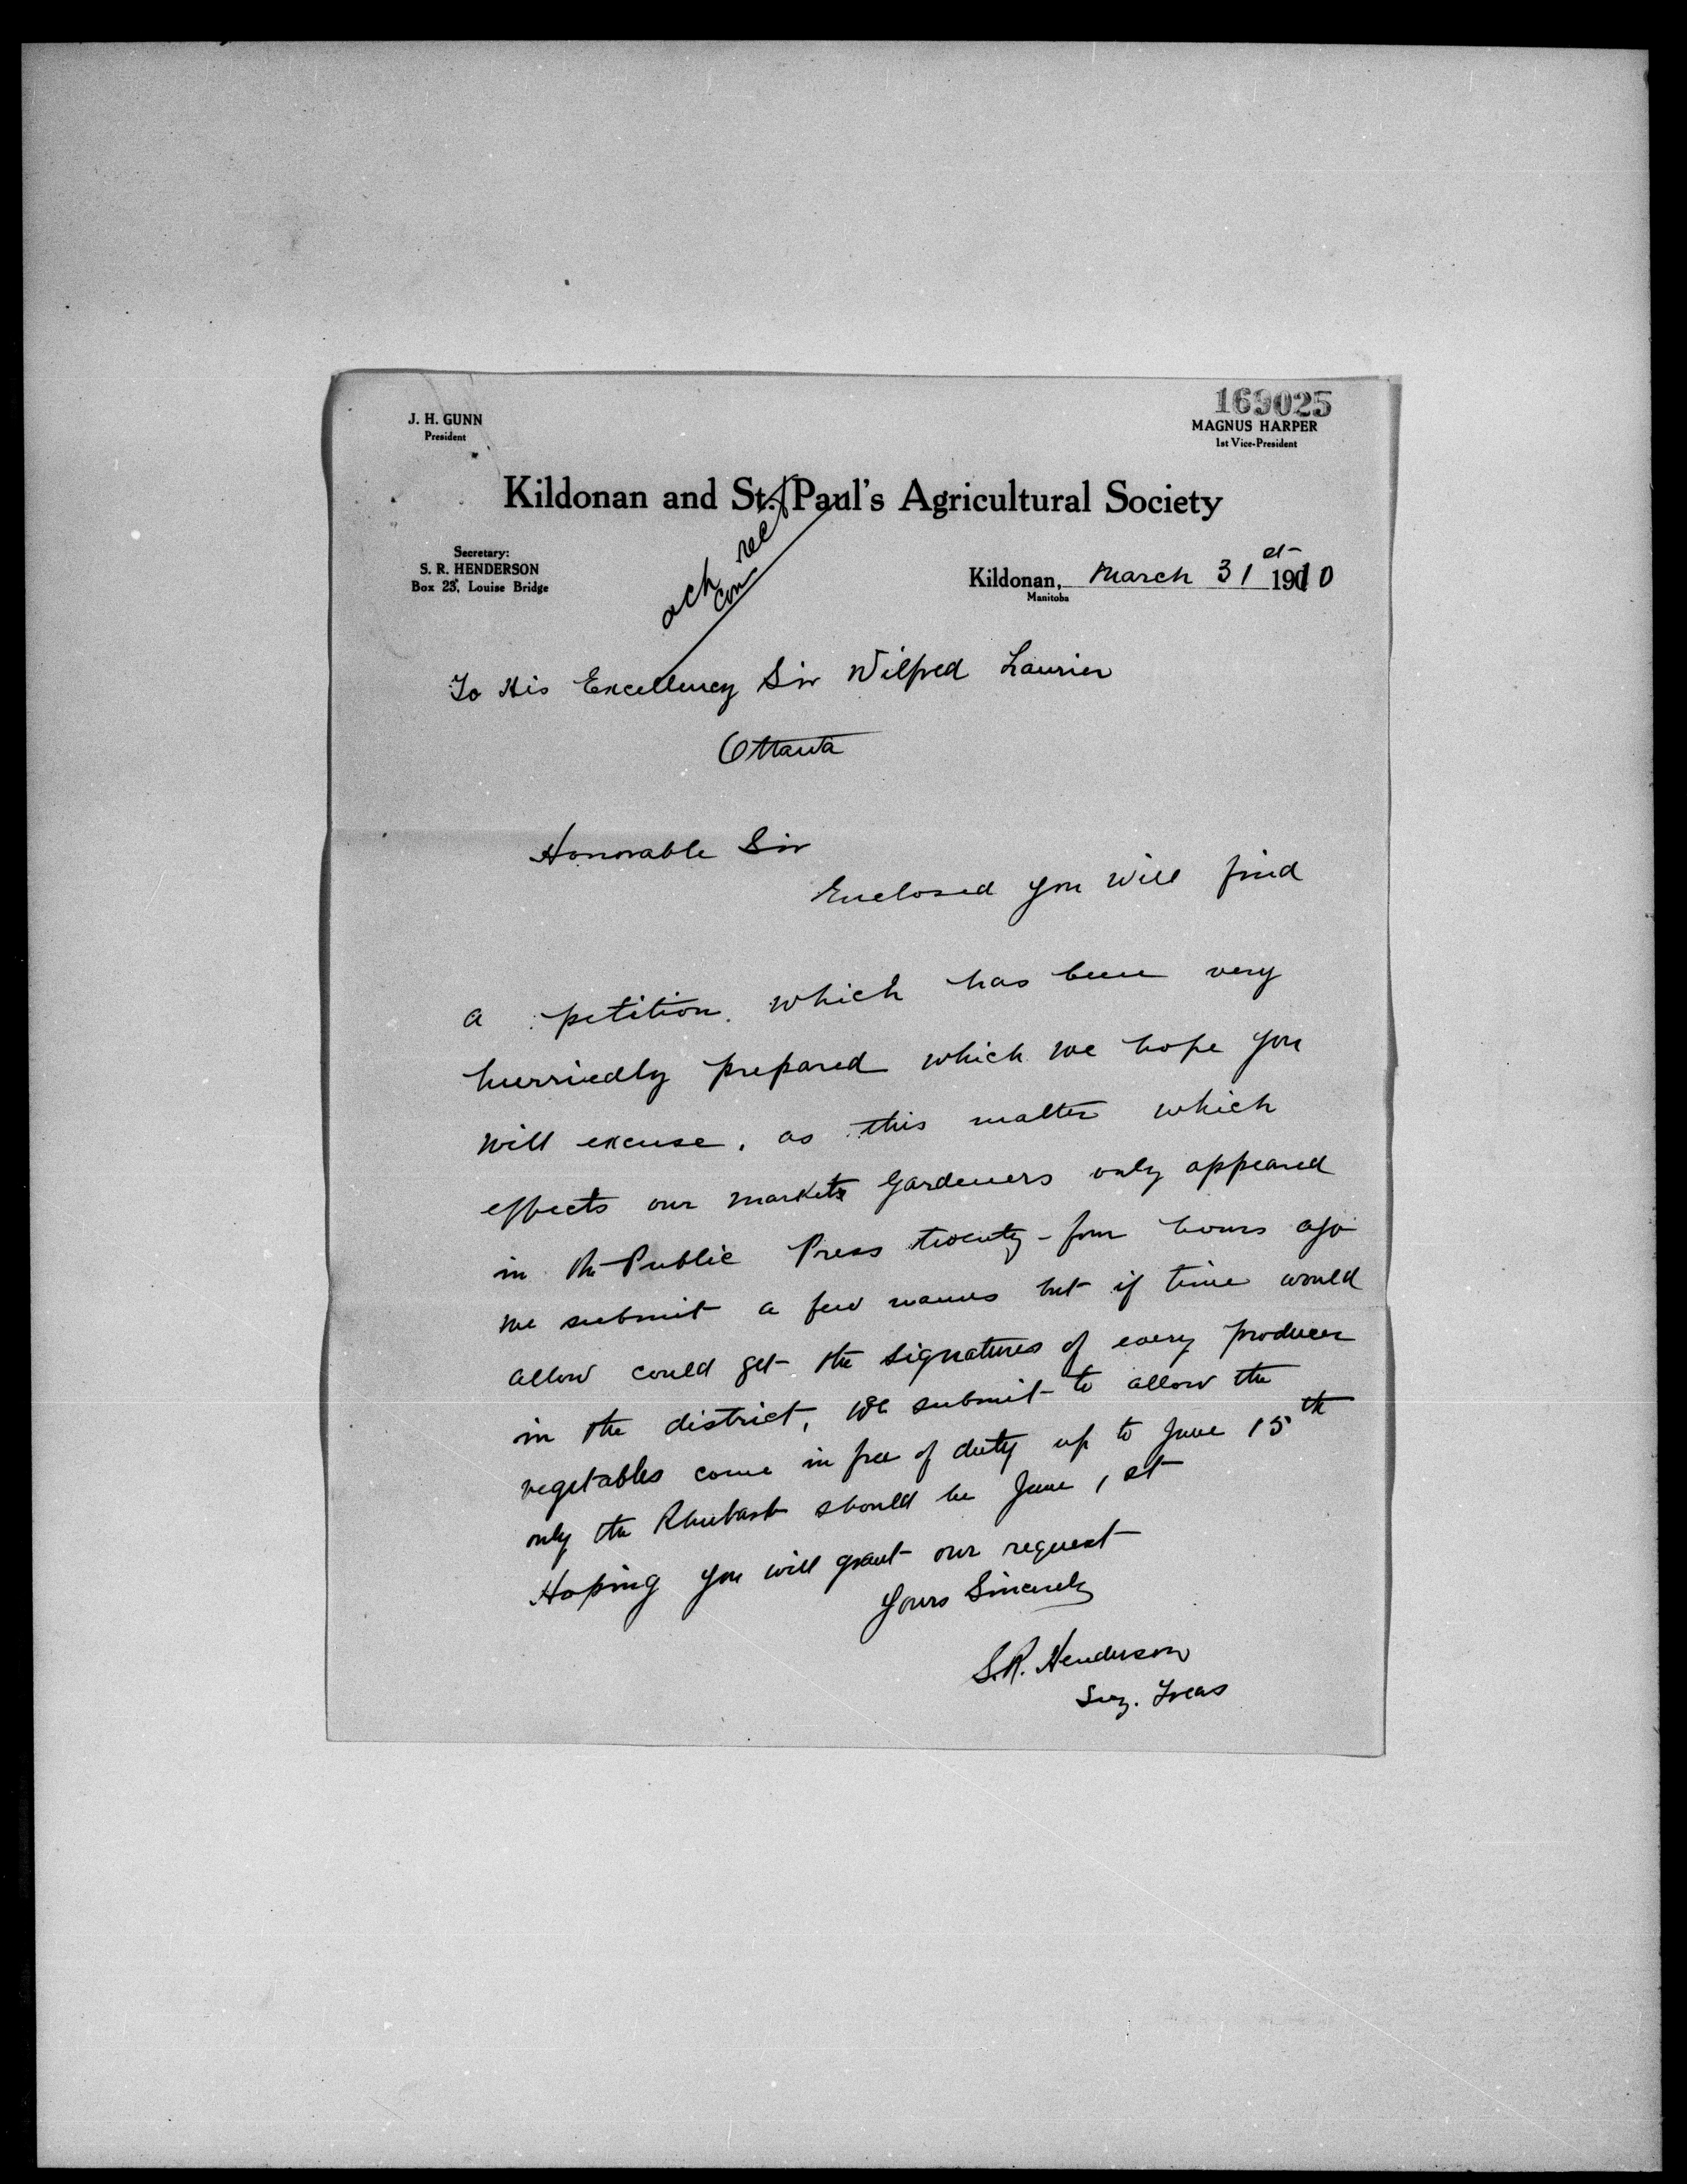 169025
J. H. GUNN
President
MAGNUS HARPER
1st Vice-President
Kildonan and St. Paul's Agricultural Society
Secretary:
S. R. HENDERSON
Box 23, Louise Bridge
ack rec
Kildonan, March 31st 1910
Manitoba
To His Excellency Sir Wilfred Laurier
Ottawa
Honorable Sir
Enclosed you will find
a petition. which has been very
hurriedly prepared which we hope you
will excuse, as this matter which
effects our markets Gardeners only appeared
in the Public Press twenty-four hours ago
we submit a few names but if time would
allow could get the signatures of every producer
in the district, we submit to allow the
vegetables come in free of duty up to June 15th
only the Rhubarb should be June 1st
Hoping you will grant our request
Yours Sincerely
S.R. Henderson
Secy. Treas